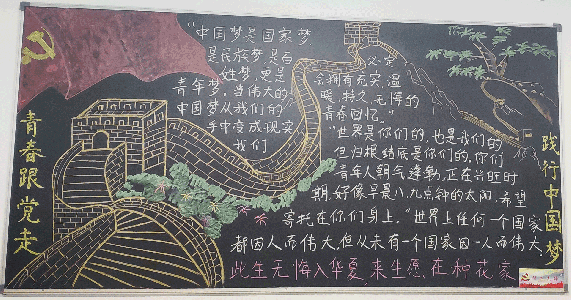 青春跟党走
"中国梦是国家梦
是民族梦是百
姓梦,更是
青年梦,当伟大的
中国梦从我们的
手中变成现实
我们
必定
会拥有充实,温
暖,持久,无悔的
青春回忆。"
"世界是你们的,也是我们的
但归根结底是你们的,你们
青年人朝气蓬勃,正在兴旺时
期,好像早晨八,九点钟的太阳,希望
寄托在你们身上。"世界上任何一个国家
都因人而伟大,但从未有一个国家因一人而伟大
此生无悔入华夏,来生愿在种花家
践行中国梦